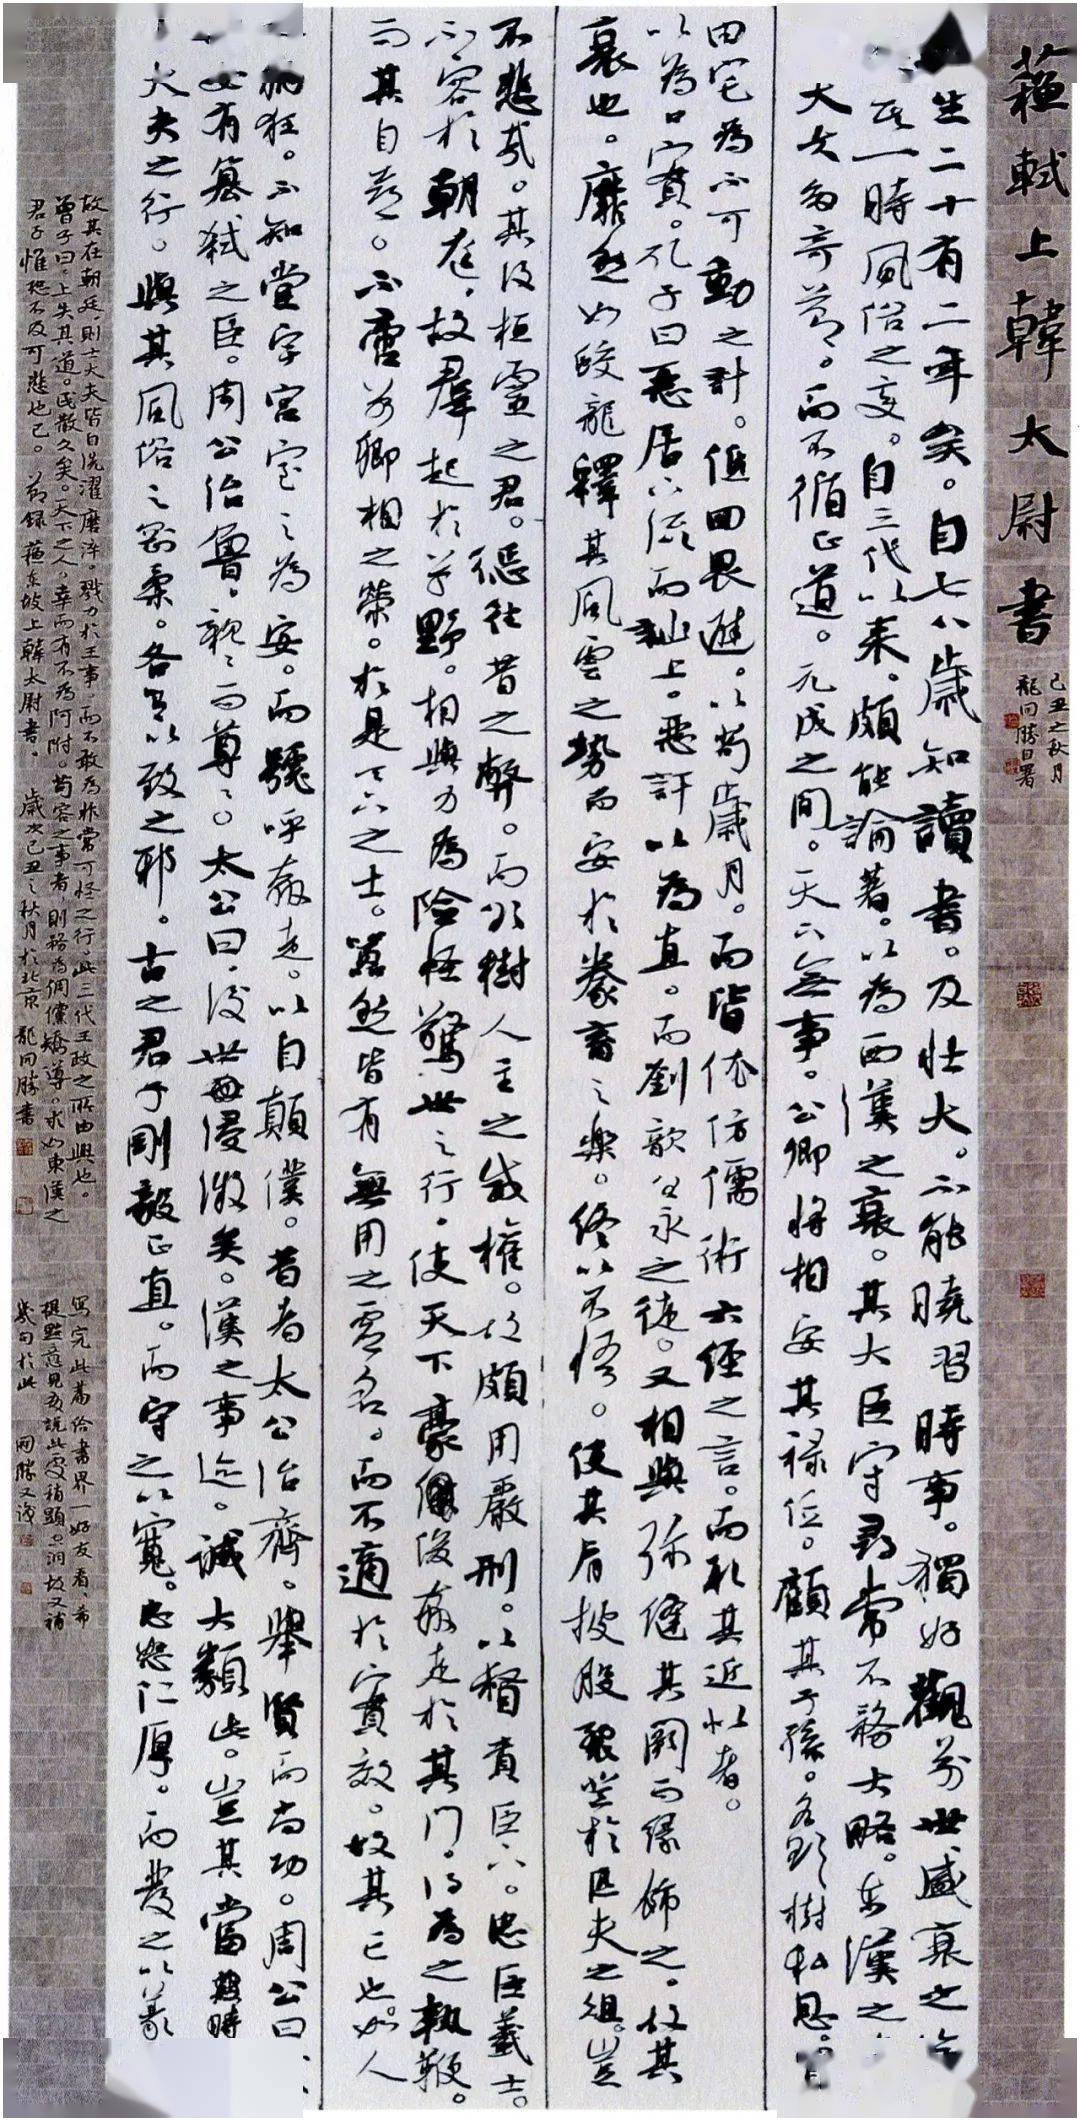 蘓軾上韓太尉書
己丑之秋月
龍開勝自署
生二十有二年矣。自七八歲知讀書。及壯大。不能曉習時事。獨好觀前世盛衰之
其一時風俗之变。自三代以来。頗能論著。以為西漢之衰。其大臣守尋常不務大略。東漢之
大夫多奇節。而不循正道。元成之間。天下無事。公卿將相安其禄位。顧其子孫。各欲樹私恩。買
田宅為不可動之計。低回畏避。以苟歲月。而皆依仿儒術六經之言。而取其近似者。
以為口實。孔子曰惡居下流而訕上。惡訐以為直。而劉歆谷永之徒。又相與弥縫其闕而緣飾之。故其
衰也。靡然如蛟龍釋其風雲之勢而安於豢畜之樂。終以不悟。使其肩披股裂登於匹夫之俎。豈
不悲哉。其後桓靈之君。懲往昔之弊。而欲樹人主之威權。故頗用嚴刑。以督責臣下。忠臣義士。
不容於朝廷。故群起於草野。相與力為險怪驚世之行。使天下豪傑俊奔走於其門。得為之執鞭。
而其自喜。不啻若卿相之榮。於是天下之士。囂然皆有無用之虛名。而不適於實效。故其亡也。如人
病狂。不知堂宇宮室之為安。而號呼奔走。以自顛僕。昔者太公治齊。舉賢而尚功。周公曰
必有篡弒之臣。周公治魯。親〻而尊〻。太公曰。後世浸微矣。漢之事迹。誠大類此。豈其當時
大夫之行。與其風俗之剛柔。各有以致之邪。古之君子剛毅正直。而守之以寬。忠恕仁厚。而發之以義
故其在朝廷。則士大夫皆自洗濯磨淬。戮力於王事。而不敢為非常可怪之行。此三代王政之所由興也。
曾子曰。上失其道。民散久矣。天下之人。幸而有不為阿附。苟容之事者。則務為倜儻矯異。求如東漢之
君子惟恐不及可悲也已。節録蘓東坡上韓太尉書。歲次己丑之秋月於北京龍開勝書
寫完此篇給書界一好友看、希
提點意見友說此處稍顯空洞故又補
幾句於此 開勝又識